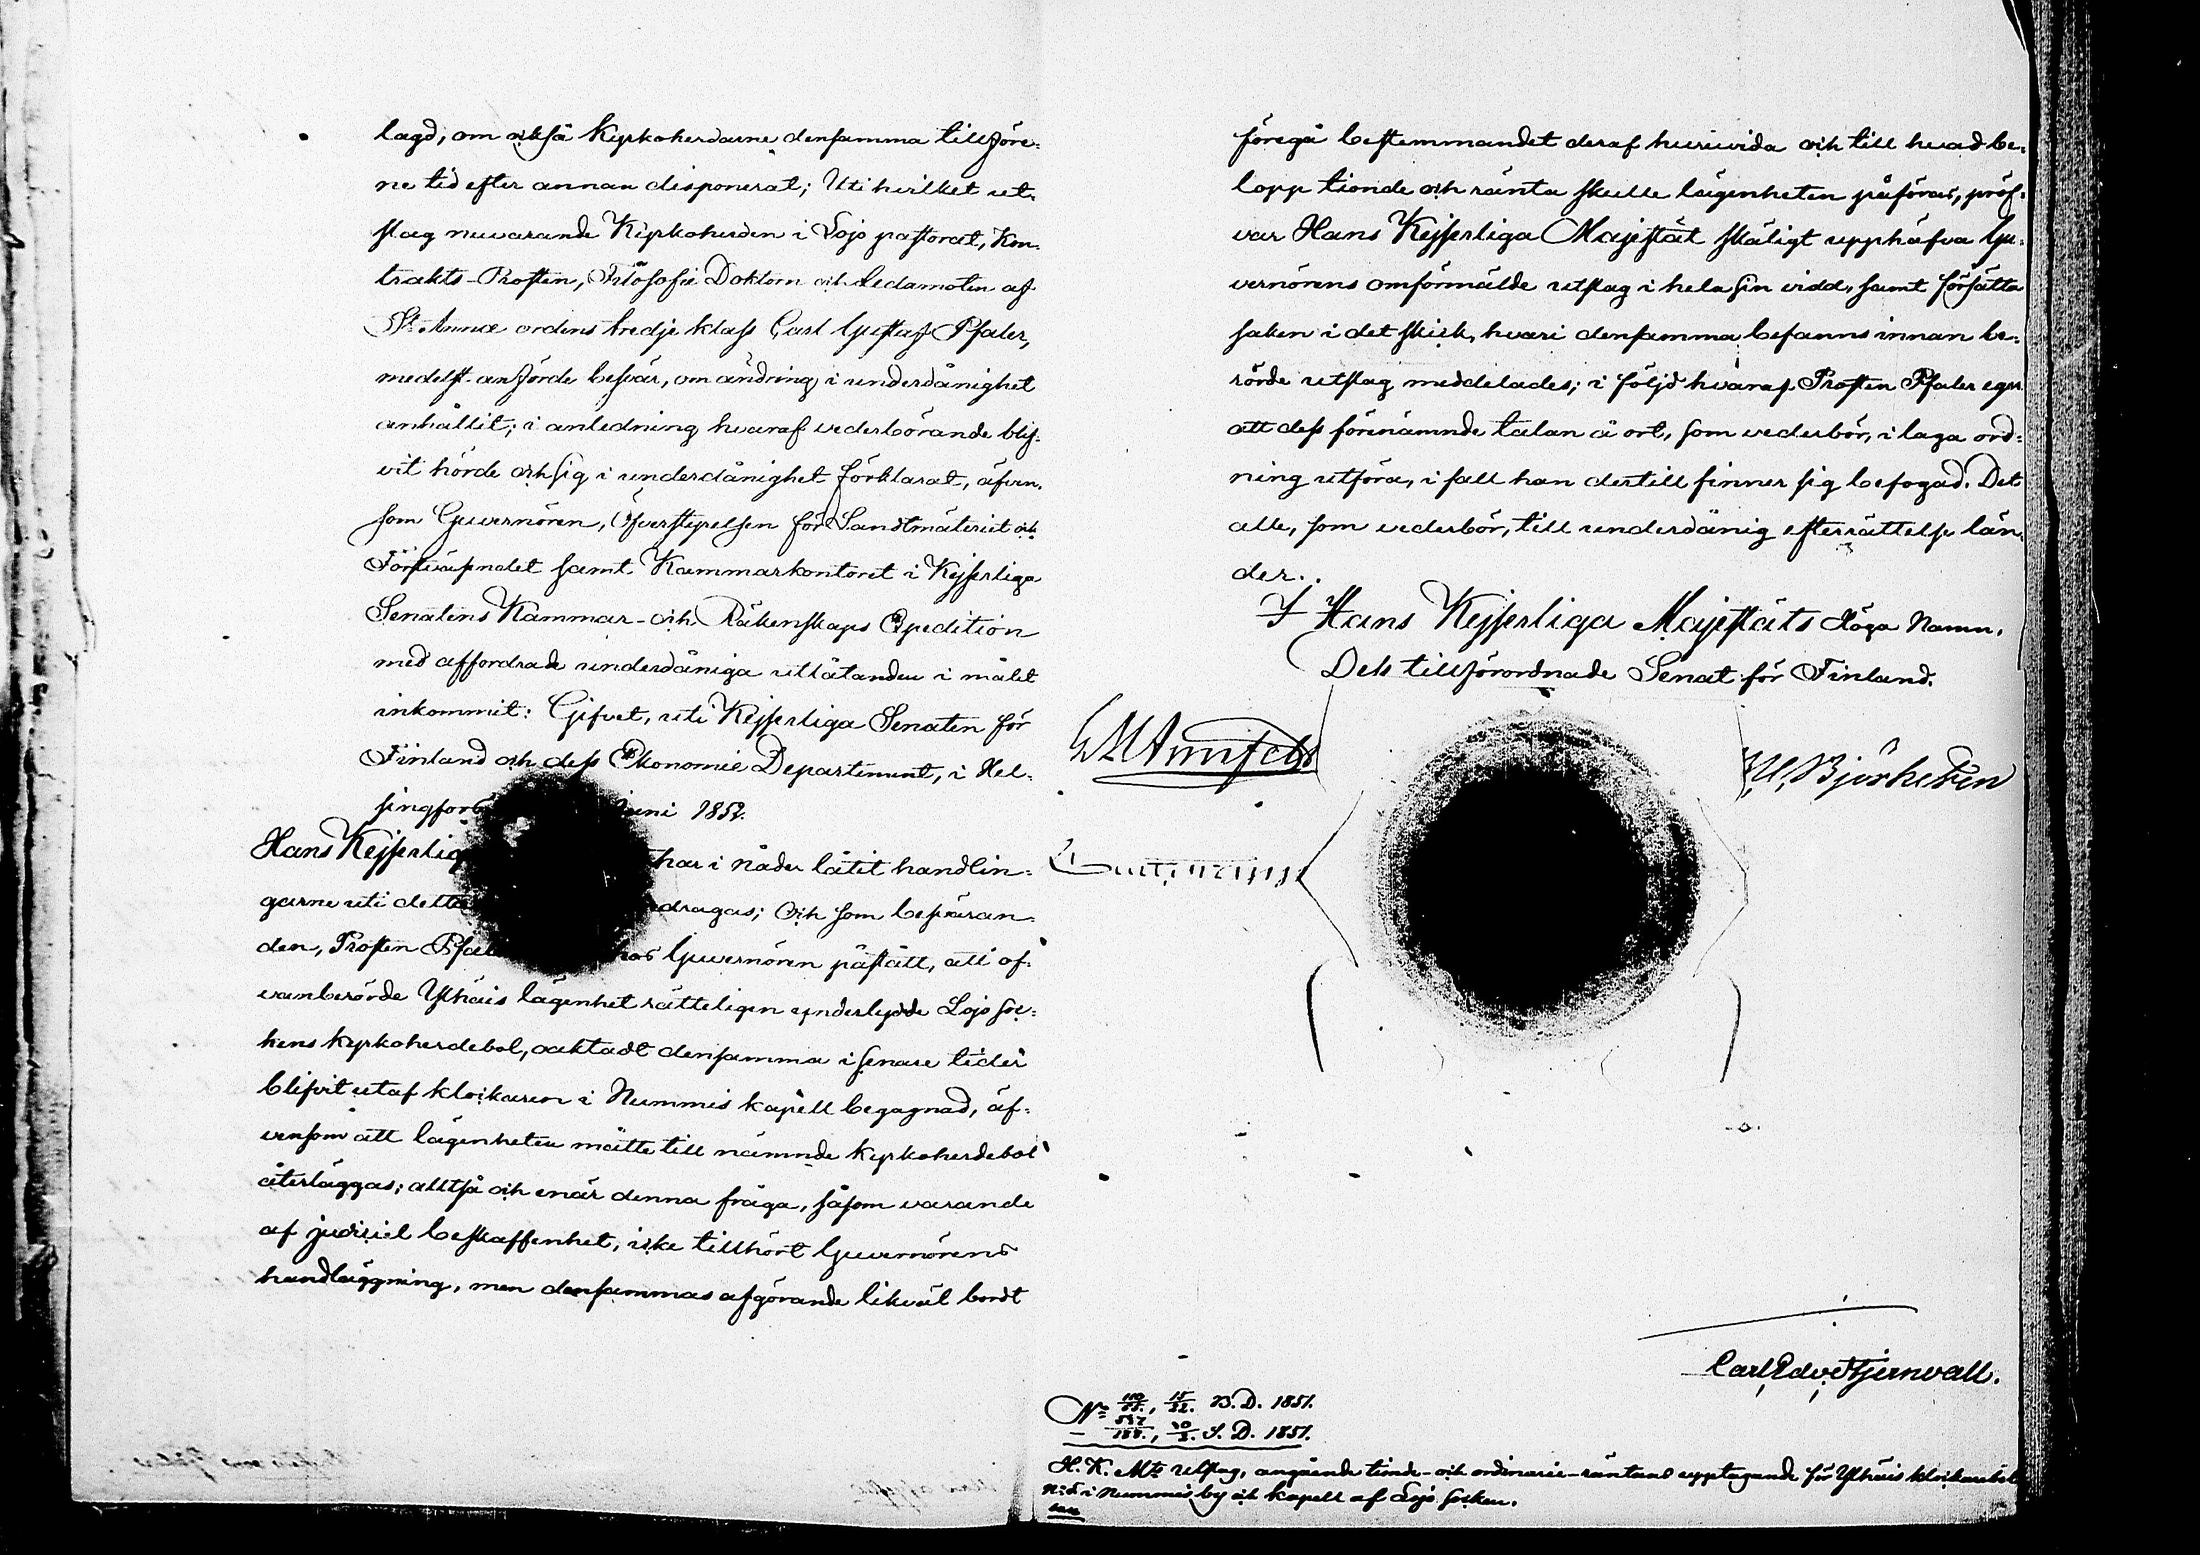 lagd, om också Kyrkoherdarne densamma tillföre-
ne tid efter annan disponerat; Uti hvilket ut-
slag nuvarande Kyrkoherden i Lojo pastorat, Kon-
trakts-Prosten, Filosofie Doktorn och Ledamoten af
S:t Annæ ordens tredje klass Carl Gustaf Pfaler,
medelst anförde besvär, om ändring i underdånighet
anhållit; i anledning hvaraf vederbörande blif-
vit hörde och sig i underdånighet förklarat, äfven-
som Guvernören, Öfverstyrelsen för Landtmäteriet och
Forstväsendet samt Kammarkontoret i Kejserliga
Senatens Kammar- och Räkenskaps Expedition
med affordrade underdåniga utlåtanden i målet
inkommit: Gifvet, uti Kejserliga Senaten för
Finland och dess Ekonomie Departement, i Hel-
singfors Juni 185
Hans Kejserlig har i nåder låtit handlin-
garne uti detta dragas; Och som besväran-
den, Prosten Pfal hos Guvernören påstått, att of-
vanberörde Ylhäis lägenhet rätteligen underlydde Lojo soc-
kens kyrkoherdebol, oaktadt densamma i senare tider
blifvit utaf klockaren i Nummis kapell begagnad, äf-
vensom att lägenheten måtte till nämnde kyrkoherdebol
återläggas; alltså och enär denna fråga, såsom varande
af judiciel beskaffenhet, icke tillhört Guvernörens
handläggning, men densammas afgörande likväl bordt
föregå bestemmandet deraf huruvida och till hvad be-
lopp tionde och ränta skulle lägenheten påföras, pröf-
var Hans Kejserliga Majestät skäligt upphäfva Gu-
vernörens omförmälde utslag i hela sin vidd, samt försätta
saken i det skick, hvari densamma befanns innan be-
rörde utslag meddelades; i följd hvaraf Prosten Pfaler eger
att dess förenämnde talan å ort, som vederbör, i laga ord-
ning utföra, i fall han dertill finner sig befogad. Det
alle, som vederbör, till underdånig efterrättelse län-
der.
I Hans Kejserliga Majestäts Höga Namn,
Dess tillförordnade Senat för Finland.
Björksten
Carl Edv. Stjernvall.
N:o B.D. 1851.
S.D. 1851.
H. K. M:ts utslag, angående tionde- och ordinarie-räntans upptagande för Ylhäis klockarebol
N:o i Nummis by och kapell af Lojo socken.